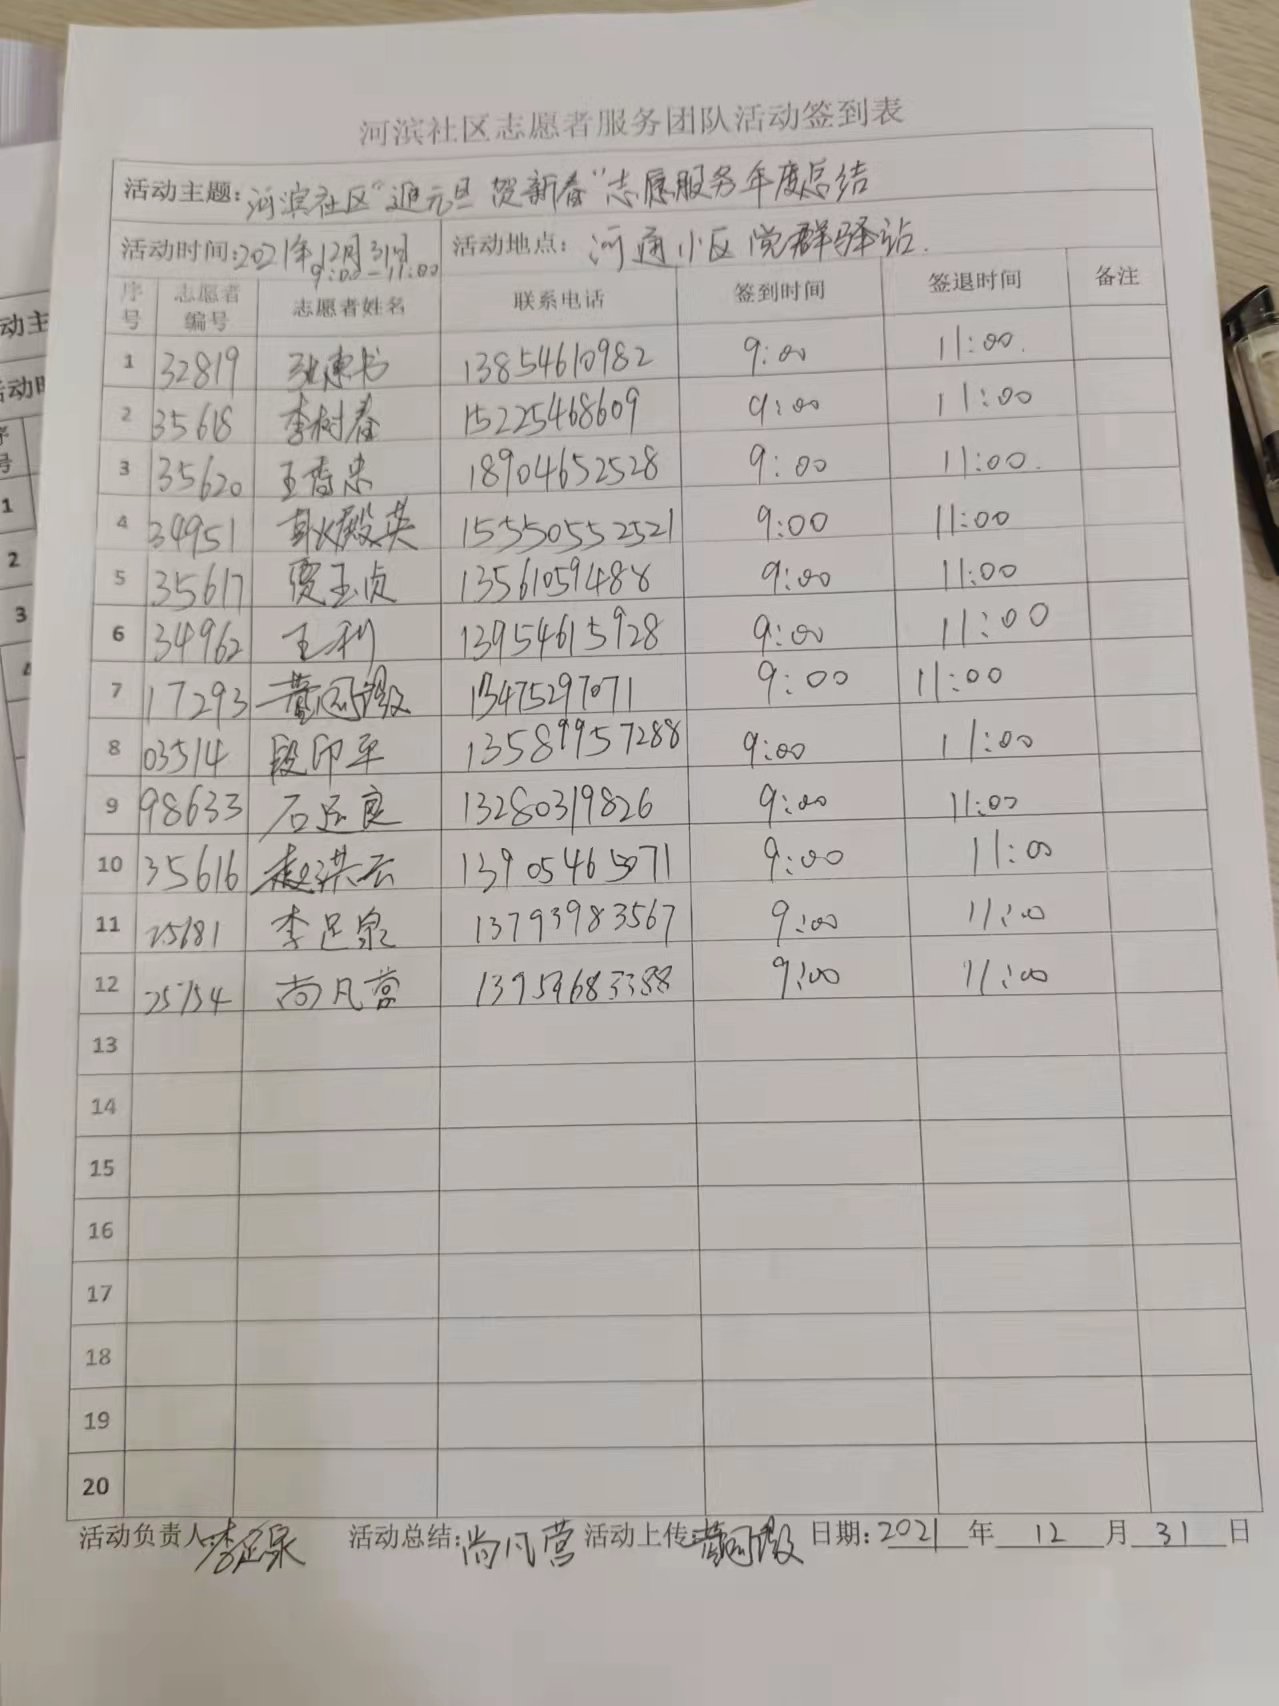 河滨社区志愿者服务团队活动签到表
活动主题:河滨社区“迎元旦 贺新春”志愿服务年度总结
活动时间:2021年12月31日 9:00-11:00 活动地点: 河通小区党群驿站.
序号 志愿者编号 志愿者姓名 联系电话 签到时间 签退时间 备注
1 32819 张惠书 13854610982 9:00 11:00.
2 35618 李树春 15225468609 9:00 11:00
3 35620 王香忠 18904652528 9:00 11:00.
4 34951 殿英 15550552521 9:00 11:00
5 35617 贾玉贞 13561059488 9:00 11:00
6 34962 王利 13954615928 9:00 11:00
7 17293 13475297071 9:00 11:00
8 03514 段印平 13589957288 9:00 11:00
9 98633 石廷良 13280319826 9:00 11:00
10 35616 赵洪云 13905465071 9:00 11:00
11 25181 李足泉 13793983567 9:00 11:00
12 25154 尚凡营 13954683388 9:00 11:00
13
14
15
16
17
18
19
20
活动负责人:李足泉 活动总结:尚凡营 活动上传 日期:2021年12月31日
动主
活动时
序
号
1
2
3
4